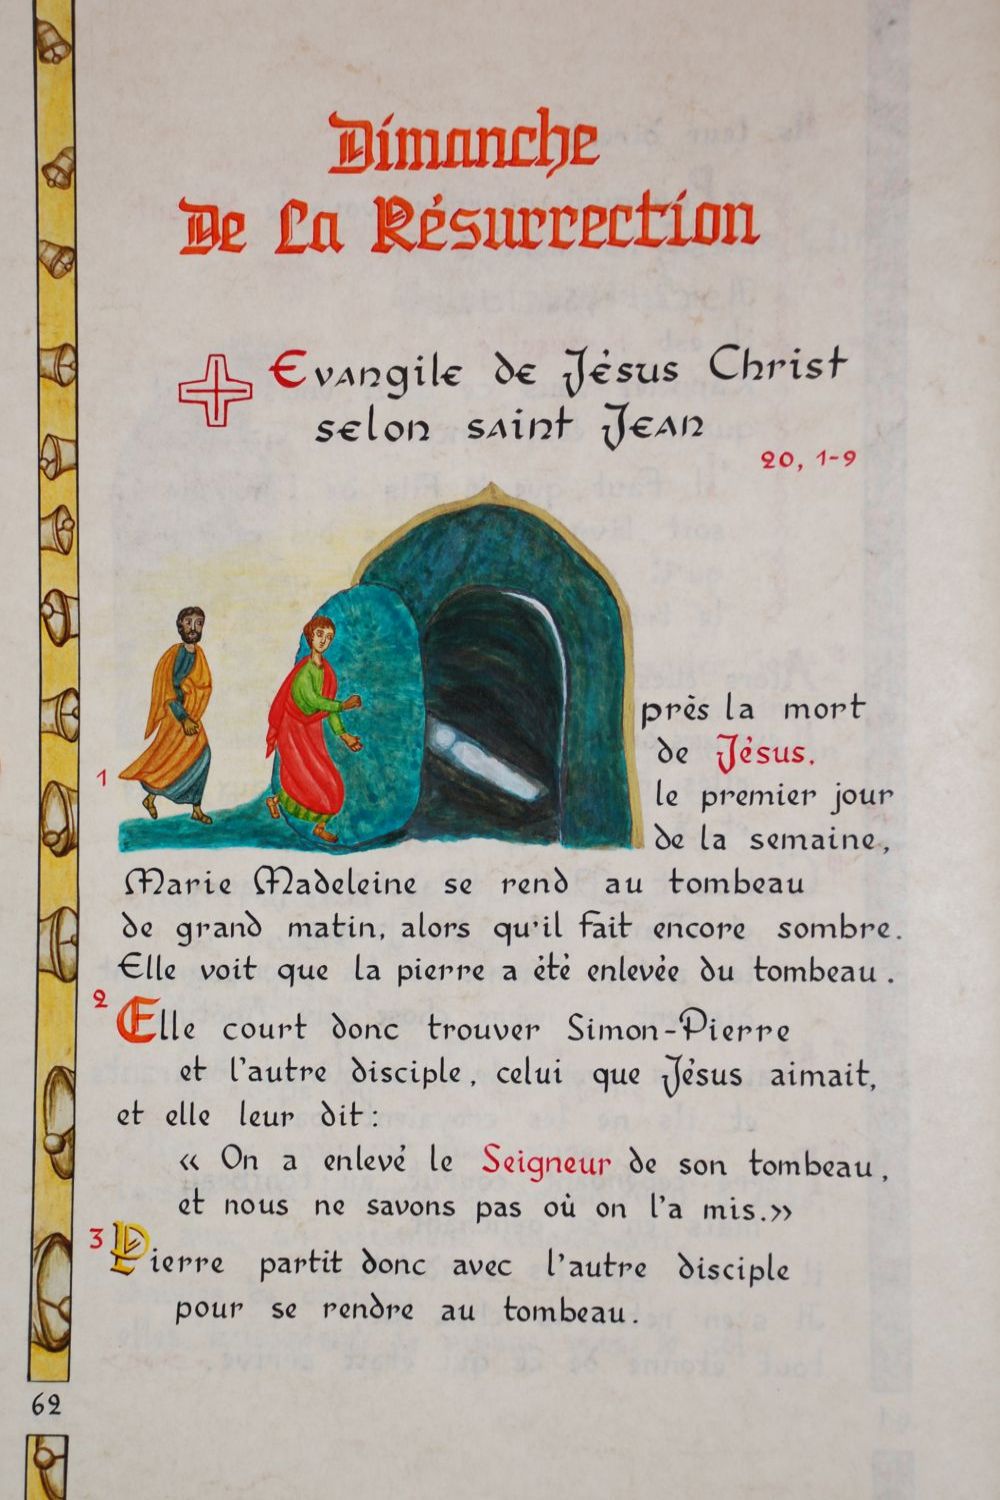 Dimanche
De La Résurrection
Evangile de Jésus Christ
selon saint Jean
20, 1-9
près la mort
de Jésus.
1
le premier jour
de la semaine,
Marie Madeleine se rend au tombeau
de grand matin, alors qu'il fait encore sombre.
Elle voit que la pierre a été enlevée du tombeau.
2
Elle court donc trouver Simon-Pierre
et l'autre disciple, celui que Jésus aimait,
et elle leur dit :
« On a enlevé le Seigneur de son tombeau,
et nous ne savons pas où on l'a mis.»
3
Pierre partit donc avec l'autre disciple
pour se rendre au tombeau.
62